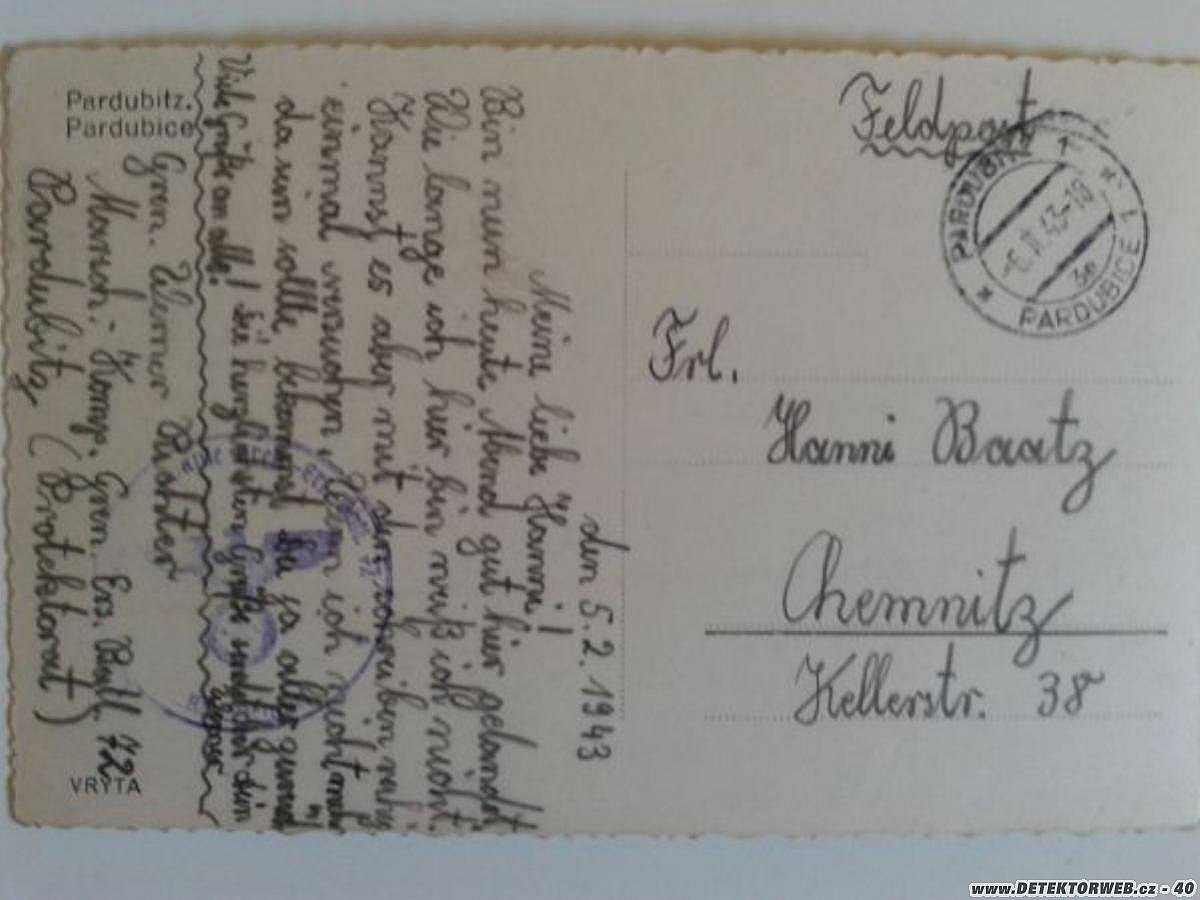 Pardubitz.
Pardubice
Feldpost
PARDUBITZ 1
-6.II.43-18
3e
PARDUBICE 1
Frl.
Hanni Baatz
Chemnitz
Kellerstr. 38
den 5.2.1943
Meine liebe Hanni!
Bin nun heute Abend gut hier gelandet.
Wie lange ich hier bin weiß ich nicht.
Kannst es aber mit dem schreiben ruhig
einmal versuchen, denn ich nicht mehr
da sein sollte, bekommst du ja alles zurück
Die herzlichsten Grüße sendet dir dein
Werner
Viele Grüße an alle!
Gren. Werner Richter
Marsch. Komp. Gren. Ers. Batl. 72
Pardubitz (Protektorat)
VRYTA
www.DETEKTORWEB.cz - 40